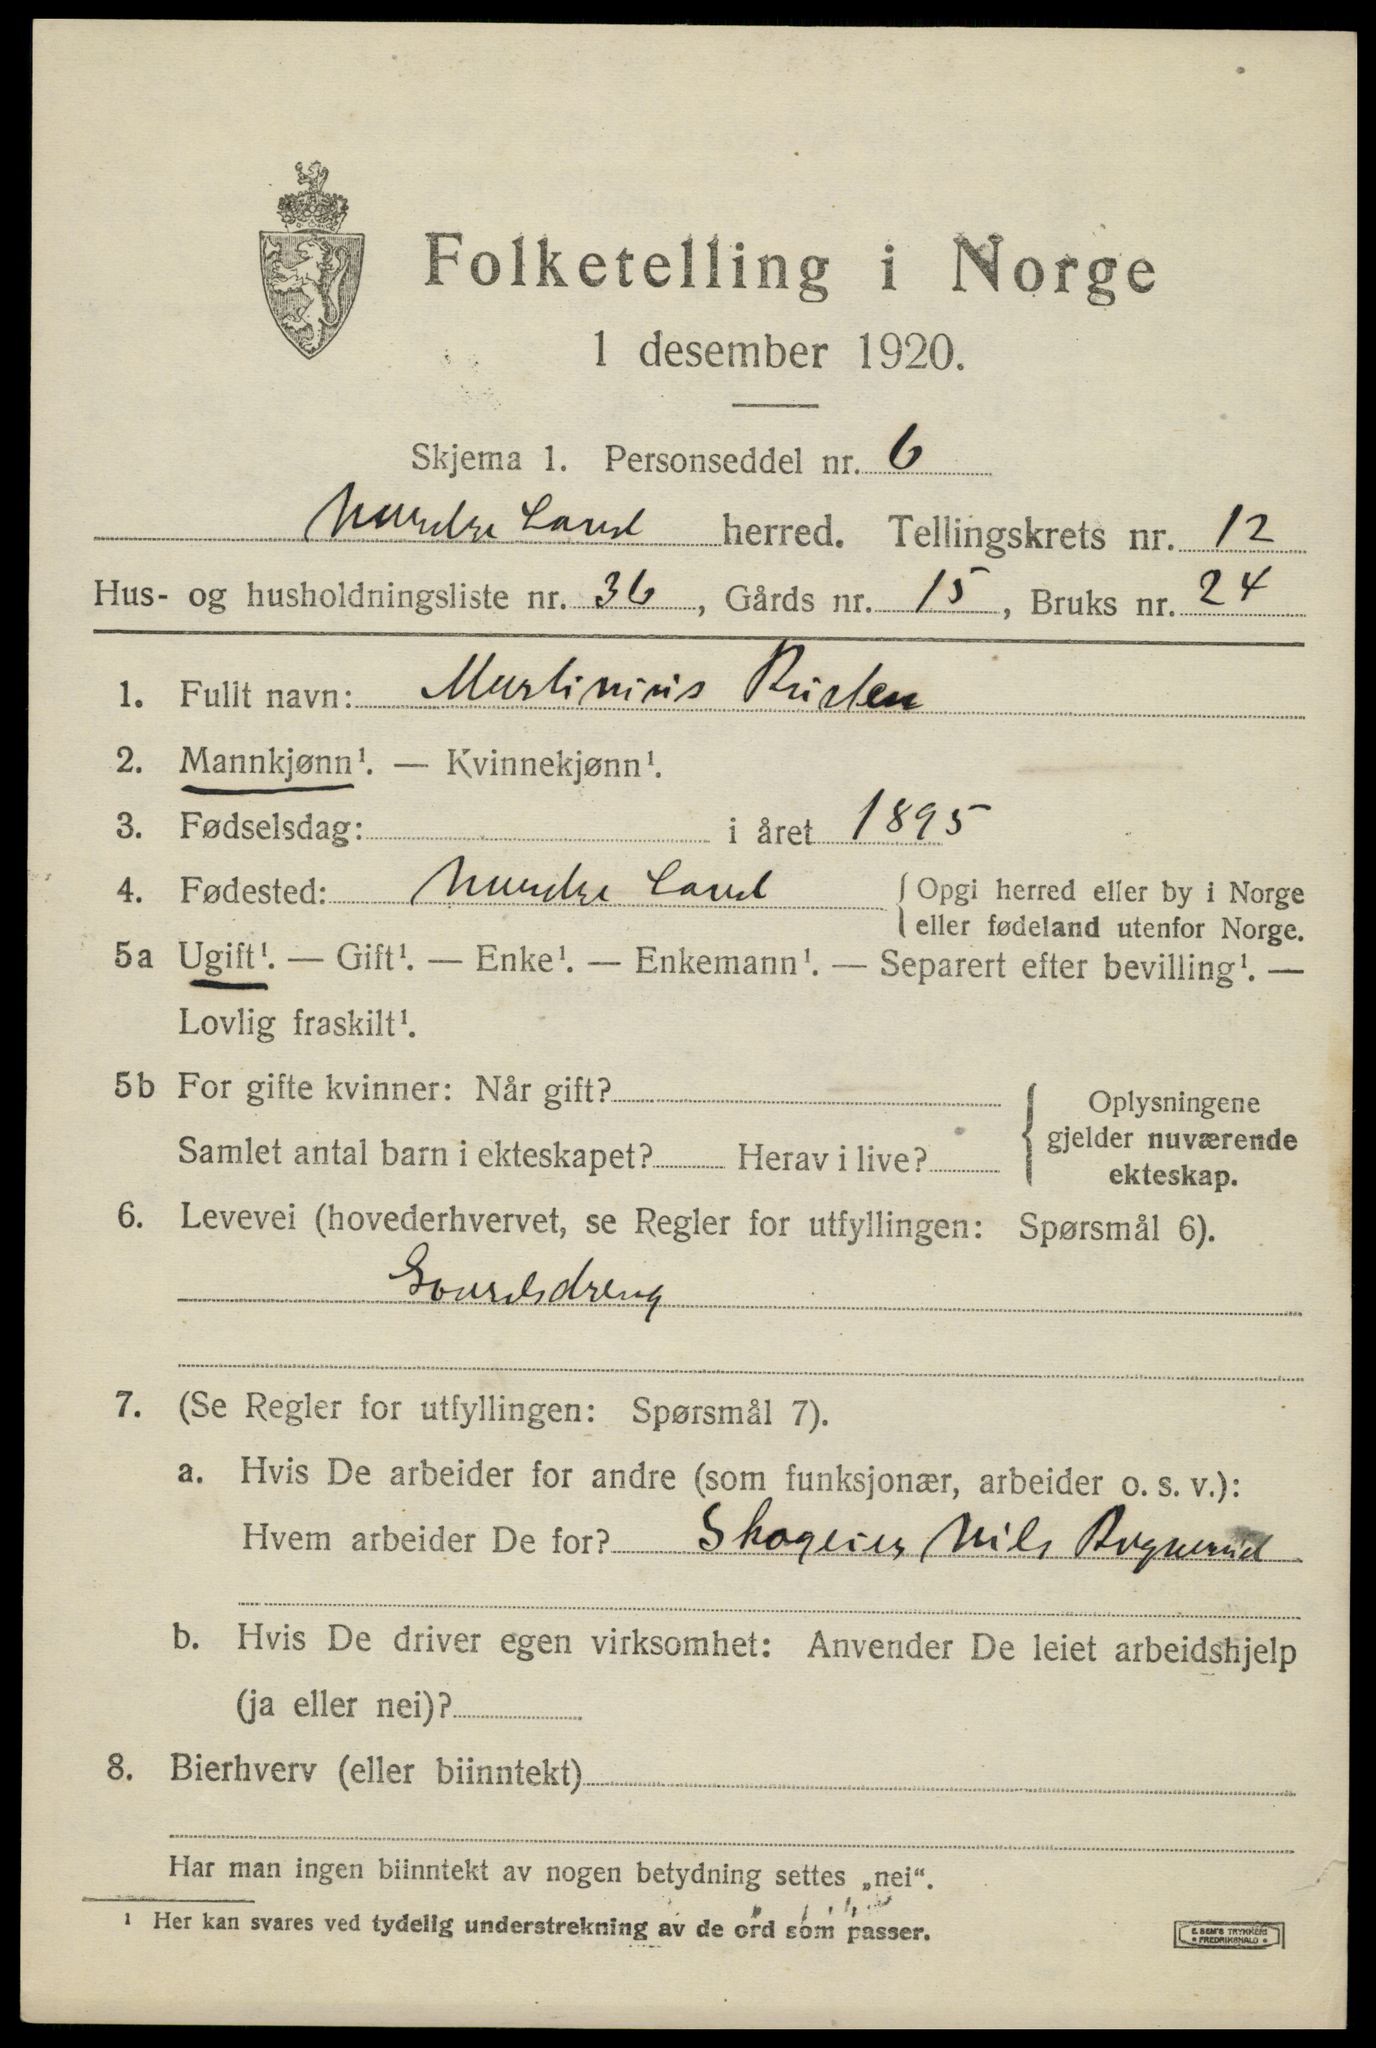 Folketelling i Norge
1 desember 1920.
Skjema 1. Personseddel nr. 6
Nordre Land herred. Tellingskrets nr. 12
Hus- og husholdningsliste nr. 36, Gårds nr. 15, Bruks nr. 24
1. Fullt navn: Martinius Rusten
2. Mannkjønn¹. — Kvinnekjønn¹.
3. Fødselsdag: i året 1895
4. Fødested: Nordre Land { Opgi herred eller by i Norge
eller fødeland utenfor Norge.
5a Ugift¹. — Gift¹. — Enke¹. — Enkemann¹. — Separert efter bevilling¹. —
Lovlig fraskilt¹.
5b For gifte kvinner: Når gift?
Samlet antal barn i ekteskapet? Herav i live?
Oplysningene
gjelder nuværende
ekteskap.
6. Levevei (hovederhvervet, se Regler for utfyllingen: Spørsmål 6).
Gaardsdreng
7. (Se Regler for utfyllingen: Spørsmål 7).
a. Hvis De arbeider for andre (som funksjonær, arbeider o. s. v.):
Hvem arbeider De for? Skogeier Nils
b. Hvis De driver egen virksomhet: Anvender De leiet arbeidshjelp
(ja eller nei)?
8. Bierhverv (eller biinntekt)
Har man ingen biinntekt av nogen betydning settes „nei“.
¹ Her kan svares ved tydelig understrekning av de ord som passer.
E SEM'S TRYKKERI
FREDRIKSHALD